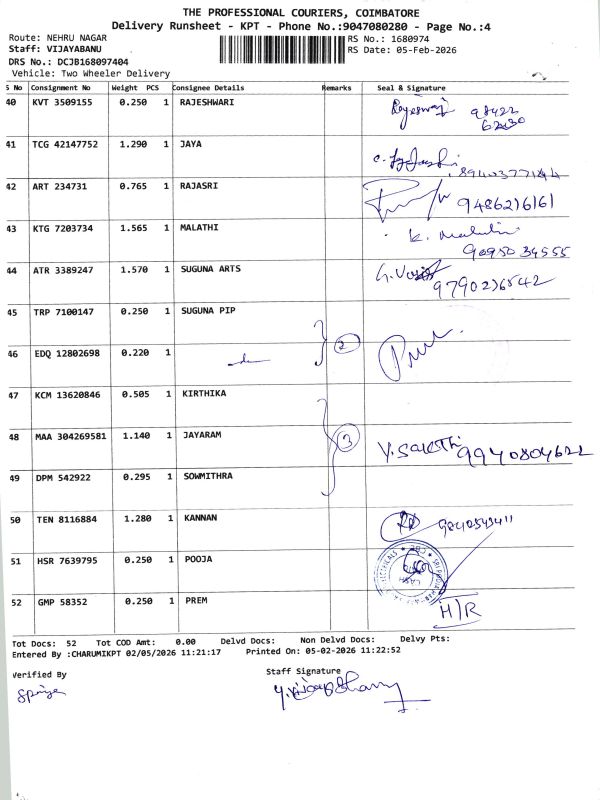 THE PROFESSIONAL COURIERS, COIMBATORE
Delivery Runsheet - KPT - Phone No.:9047080280 - Page No.:4
Route: NEHRU NAGAR RS No.: 1680974
Staff: VIJAYABANU RS Date: 05-Feb-2026
DRS No.: DCJB168097404
Vehicle: Two Wheeler Delivery
S No Consignment No Weight PCS Consignee Details Remarks Seal & Signature
40 KVT 3509155 0.250 1 RAJESHWARI
41 TCG 42147752 1.290 1 JAYA
42 ART 234731 0.765 1 RAJASRI 9486216161
43 KTG 7203734 1.565 1 MALATHI K. Malathi
9095034555
44 ATR 3389247 1.570 1 SUGUNA ARTS
9790236542
45 TRP 7100147 0.250 1 SUGUNA PIP
2
46 EDQ 12802698 0.220 1
47 KCM 13620846 0.505 1 KIRTHIKA
48 MAA 304269581 1.140 1 JAYARAM 3 9940804622
49 DPM 542922 0.295 1 SOWMITHRA
50 TEN 8116884 1.280 1 KANNAN 9840543411
51 HSR 7639795 0.250 1 POOJA
52 GMP 58352 0.250 1 PREM H/R
Tot Docs: 52 Tot COD Amt: 0.00 Delvd Docs: Non Delvd Docs: Delvy Pts:
Entered By :CHARUMIKPT 02/05/2026 11:21:17 Printed On: 05-02-2026 11:22:52
Verified By Staff Signature